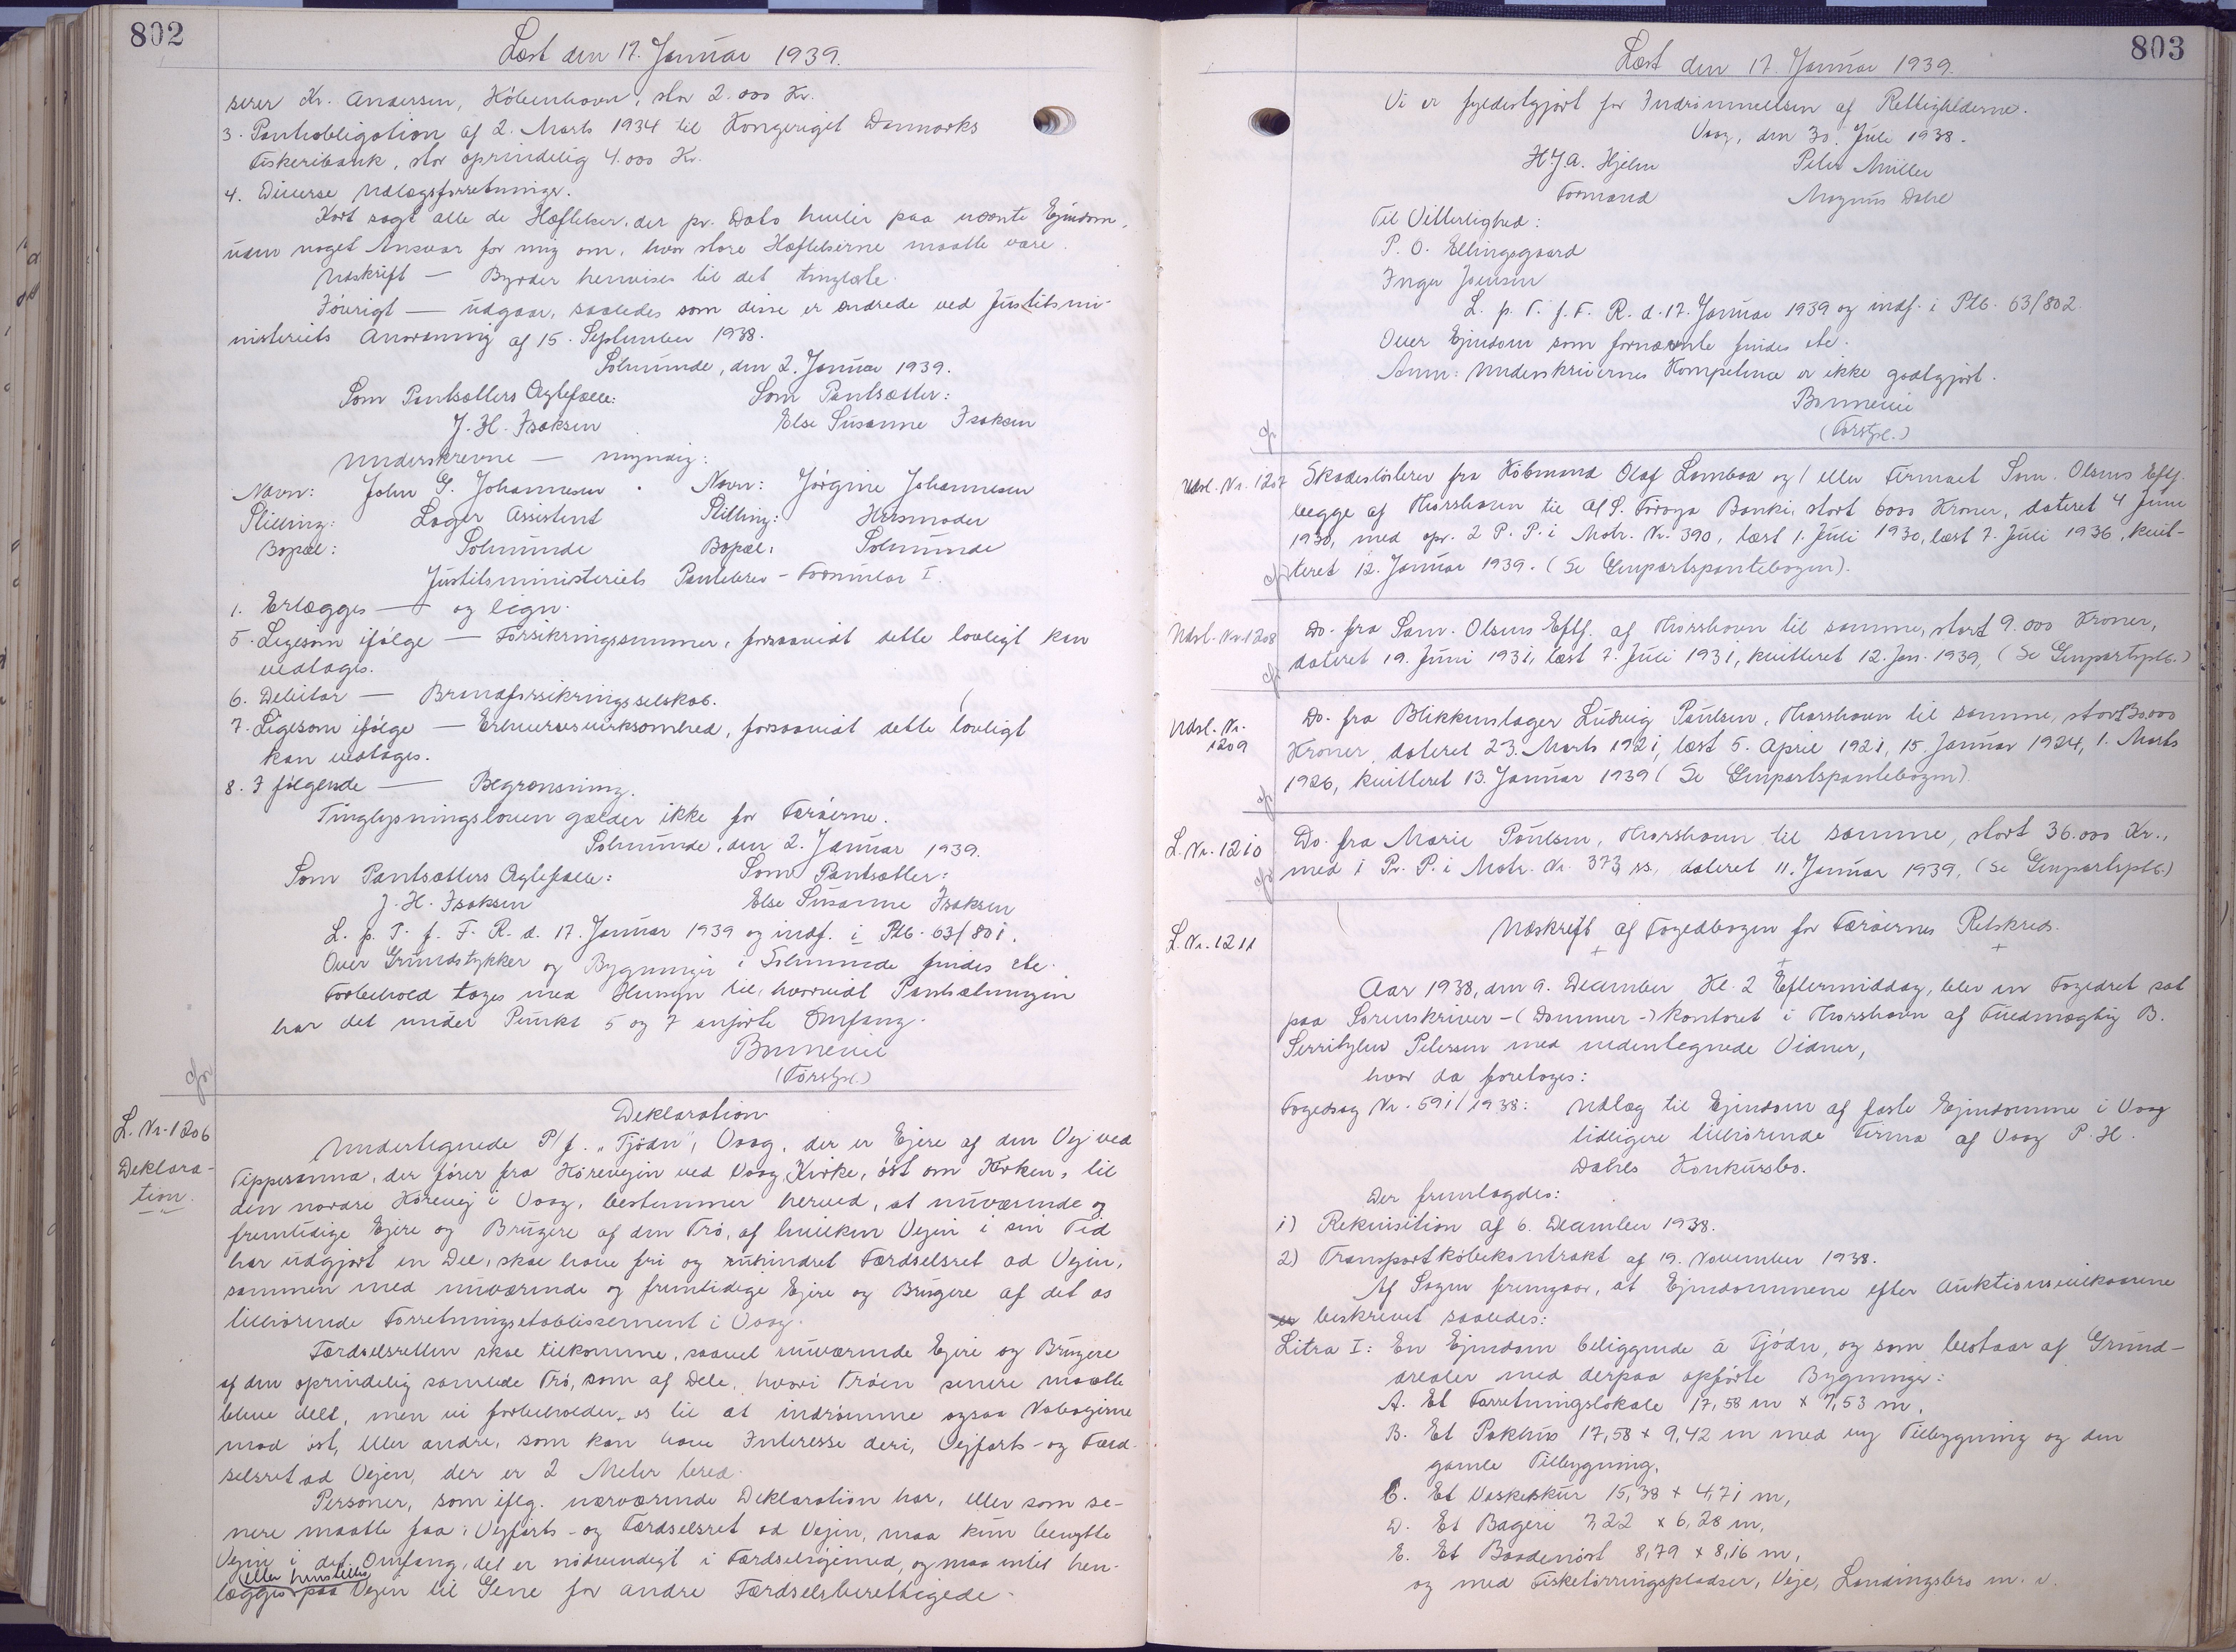 802
Læst den 17. Januar 1939.
serer Kr. Andersen, København, stor 2.000 Kr.
3. Pantobligation af 2. Marts 1934 til Kongeriget Danmarks
Fiskeribank, stor oprindelig 4.000 Kr.
4. Diverse Udlægsforretninger.
Kort sagt alle de Hæftelser, der pr. Dato hviler paa nævnte Ejendom,
uden noget Ansvar for mig om, hvor store Hæftelserne maatte være.
Udskrift — Byrder henvises til det tinglæste.
Iøvrigt — udgaar, saaledes som disse er ændrede ved Justitsmi-
nisteriets Anordning af 15. September 1938.
Solmunde, den 2. Januar 1939.
Som Pantsætters Ægtefælle: Som Pantsætter:
J. H. Isaksen Else Susanne Isaksen
Underskrevne — myndig:
Navn: John G. Johannesen. Navn: Jørgine Johannesen
Stilling: Lager Assistent Stilling: Husmoder
Bopæl: Solmunde Bopæl: Solmunde
Justitsministeriets Pantebrev - Formular I.
1. Erlægges — og lign.
5. Ligesom ifølge — Forsikringssummer, forsaavidt dette lovligt kan
vedtages.
6. Debitor — Brandforsikringsselskab.
7. Ligesom ifølge — Erhvervsvirksomhed, forsaavidt dette lovligt
kan vedtages.
8. I følgende — Begrænsning.
Tinglysningsloven gælder ikke for Færøerne.
Solmunde, den 2. Januar 1939.
Som Pantsætters Ægtefælle: Som Pantsætter:
J. H. Isaksen Else Susanne Isaksen
L. p. T. f. F. R. d. 17. Januar 1939 og indf. i Ptb. 63/801.
Over Grundstykker og Bygninger i Solmunde findes etc.
Forbehold tages med Hensyn til, hvorvidt Pantsætningen
har det under Punkt 5 og 7 anførte Omfang.
(Forstpl.)
L. Nr. 1206
Deklara-
tion.
Deklaration.
Undertegnede P/f. "Tjödn", Vaag, der er Ejere af den Vej ved
Tippusanna, der fører fra Hovevejen ved Vaag Kirke, øst om Kirken, til
den nordre Hovevej i Vaag, bestemmer herved, at nuværende og
fremtidige Ejere og Brugere af den Trø, af hvilken Vejen i sin Tid
har udgjort en Del, skal have fri og uhindret Færdselsret ad Vejen,
sammen med nuværende og fremtidige Ejere og Brugere af det os
tilhørende Forretningsetablissement i Vaag.
Færdselsretten skal tilkomme, saavel nuværende Ejere og Brugere
af den oprindelig samlede Trø, som af Dele, hvori Trøen senere maatte
blive delt, men vi forbeholder os til at indrømme ogsaa Naboejerne
mod øst, eller andre, som kan have Interesse deri, Vejfarts- og Færd-
selsret ad Vejen, der er 2 Meter bred.
Personer, som iflg. nærværende Deklaration har, eller som se-
nere maatte faa, Vejfarts- og Færdselsret ad Vejen, maa kun benytte
Vejen i det Omfang, det er nødvendigt i Færdselsøjemed, og maa intet hen-
(eller henstilles)
lægges paa Vejen til Gene for andre Færdselsberettigede.
803
Læst den 17. Januar 1939.
Vi er fyldestgjort for Indrømmelsen af Rettighederne.
Vaag, den 30. Juli 1938.
H.J.A. Hjelm Peter Müller
Formand Magnus Dahl
Til Vitterlighed:
P. O. Ellingsgaard
Inger Joensen
L. p. T. f. F. R. d. 17. Januar 1939 og indf. i Ptb. 63/802.
Over Ejendom som fornævnte findes etc.
Anm: Underskrivernes Kompetence er ikke godtgjort.
(Forstpl.)
Udsl. Nr. 1207
Skadesløsbrev fra Købmand Olaf Lamhaa og/eller Firmaet Sam. Olsens Eftf.
begge af Thorshavn til A/S. Føroya Banki, stort 6000 Kroner, dateret 4 Juni
1930, med opr. 2 P. P. i Matr. Nr. 390, læst 1. Juli 1930, læst 7. Juli 1936, kvit-
teret 12. Januar 1939. (Se Genpartspantebogen).
Udsl. Nr. 1208
Do. fra Sam. Olsens Eftf. af Thorshavn til samme, stort 9.000 Kroner,
dateret 19. Juni 1931, læst 7. Juli 1931, kvitteret 12. Jan. 1939, (Se Genpartsptb.)
Udsl. Nr.
1209
Do. fra Blikkenslager Ludvig Poulsen, Thorshavn til samme, stort 30.000
Kroner, dateret 23. Marts 1921, læst 5. April 1921, 15. Januar 1924, 1. Marts
1926, kvitteret 13. Januar 1939 (Se Genpartspantebogen).
L. Nr. 1210
Do. fra Marie Poulsen, Thorshavn til samme, stort 36.000 Kr.,
med 1 Pr. P. i Matr. Nr. 373 ss, dateret 11. Januar 1939, (Se Genpartsptb.)
L. Nr. 1211
Udskrift af Fogedbogen for Færøernes Retskreds.
Aar 1938, den 9. December Kl. 2 Eftermiddag, blev en Fogedret sat
paa Sorenskriver-(Dommer-)kontoret i Thorshavn af Fuldmægtig B.
Serritzlew Petersen med undertegnede Vidner,
hvor da foretoges:
Fogedsag Nr. 591/1938: Udlæg til Ejendom af faste Ejendomme i Vaag
tidligere tilhørende Firma af Vaag P. H.
Dahls Konkursbo.
Der fremlagdes:
1) Rekvisition af 6. December 1938.
2) Transportkøbekontrakt af 19. November 1938.
Af Sagen fremgaar, at Ejendommene efter Auktionsvilkaarene
er beskrevet saaledes:
Litra I: En Ejendom beliggende á Tjödn, og som bestaar af Grund-
arealer med derpaa opførte Bygninger:
A. Et Forretningslokale 17,58 m x 7,53 m,
B. Et Pakhus 17,58 x 9,42 m med ny Tilbygning og den
gamle Tilbygning,
C. Et Vaskeskur 15,38 x 4,71 m,
D. Et Bageri 7,22 x 6,28 m,
E. Et Baadenøst 8,79 x 8,16 m,
og med Fisketørringspladser, Veje, Landingsbro m. v.